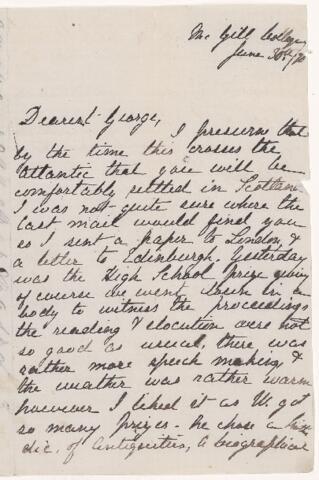 Mc Gill College
June 30th/70
Dearest George,
I presume that
by the time this crosses the
Atlantic that you will be
comfortably settled in Scotland
I was not quite sure where the
last mail would find you
so I sent a paper to London, &
a letter to Edinburgh. Yesterday
was the High School prize giving
of course we went down in a
body to witness the proceedings
the reading & elocution were not
so good as usual, there was
rather more speech making &
the weather was rather warm
however I liked it as W. got
so many prizes - he chose a
dic. of Antiquities, a biographical